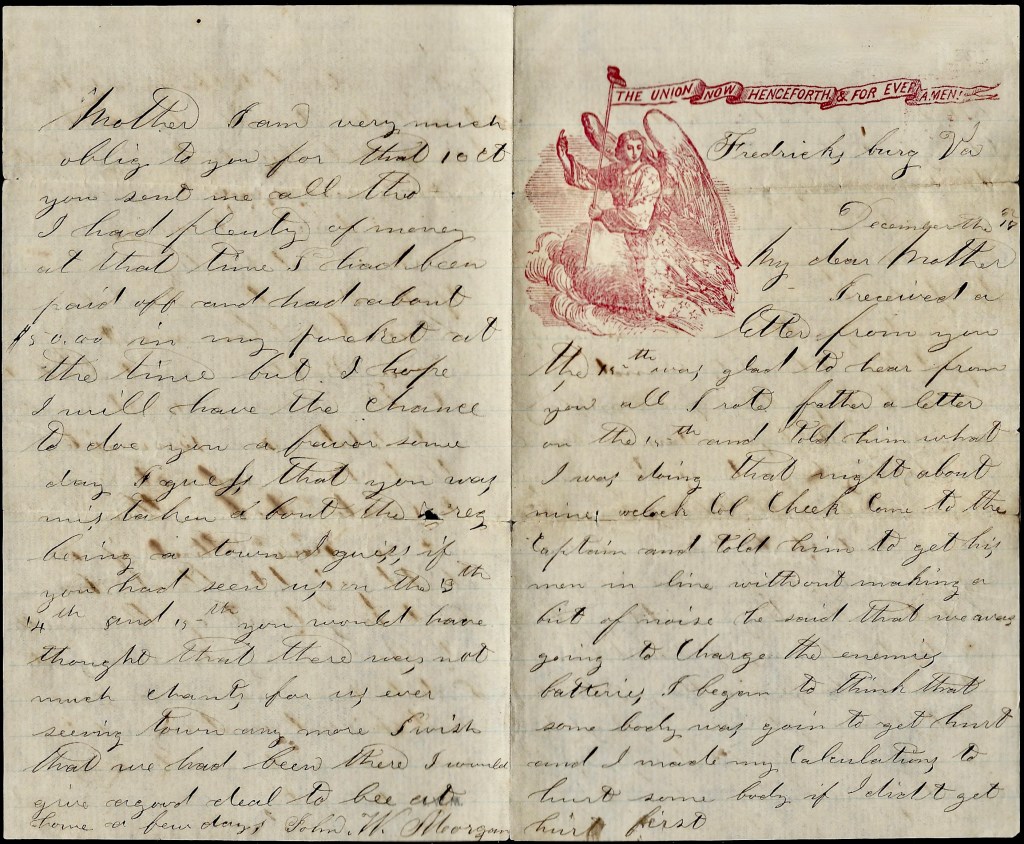 THE UNION NOW HENCEFORTH & FOR EVER AMEN!
Fredricks burg Va
December the
My dear Mother
I received a
letter from you
the 15th was glad to hear from
you all I rote father a letter
on the 15th and told him what
I was doing that night about
nine oclock Col Cheek Come to the
Captain and told him to get his
men in line without making a
bit of noise he said that we was
going to Charge the enemies
batteries I began to think that
some body was goin to get hurt
and I made my Calculations to
hurt some body if I didt get
hurt first
Mother I am very much
oblig to you for that 10 ct
you sent me all tho
I had plenty of money
at that time I had been
paid off and had about
$50.00 in my pocket at
the time but I hope
I will have the Chance
to doe you a favor some
day I guess that you was
mistaken about the reg
being in town I guess if
you had seen us on the 13th
14th and 15th you would have
thought that there was not
much chants for us ever
seeing town any more I wish
that we had been there I would
give a good deal to bee at
home a few days John W. Moorgan